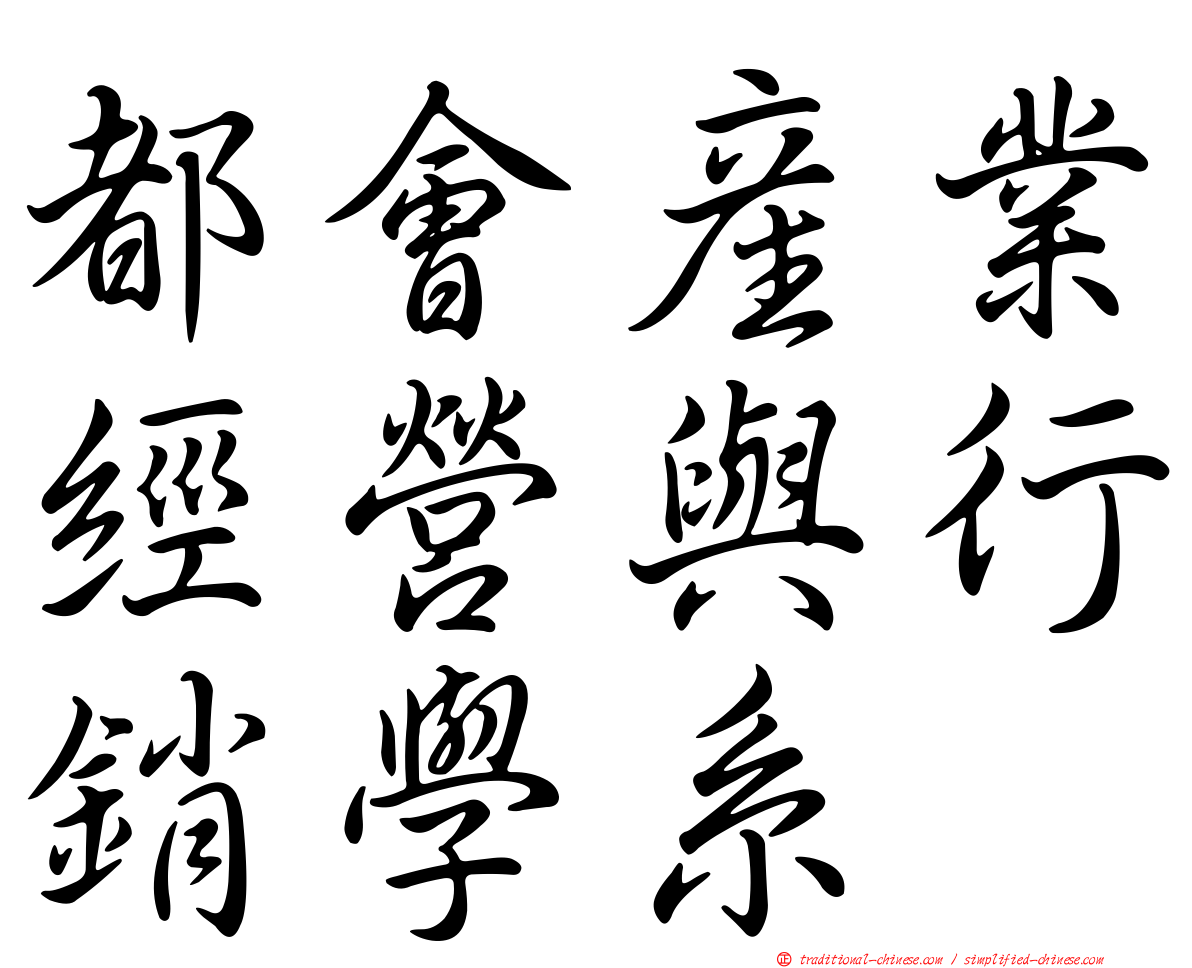 都會產業
經營與行
銷學系
正 traditional-chinese.com / simplified-chinese.com